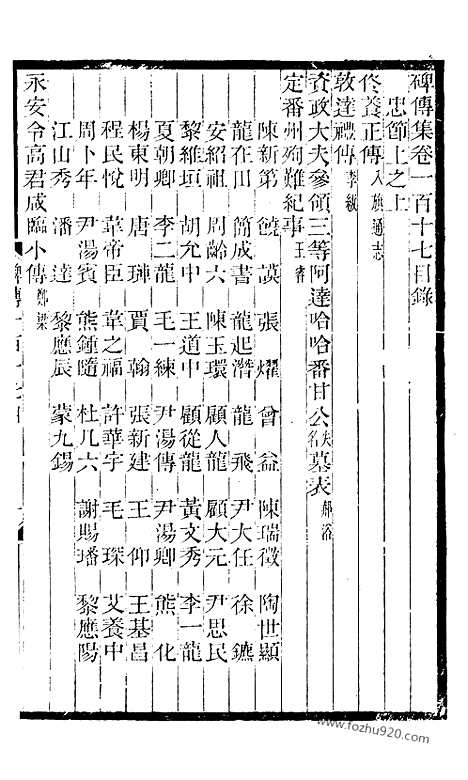 碑傳集卷一百十七目錄
忠節上之上
佟養正傳八旗通志
敦達禮傳李紱
資政大夫參領三等阿達哈哈番甘公失名墓表
定番州殉難紀事王睿
陳新第 饒謨 張燿 曾益 陳瑞徵 陶世顯
龍在田 簡成書 龍起潛 龍飛 尹大任 徐鑣
安紹祖 周齡六 陳玉環 顧人龍 顧大元 尹思民
黎維垣 胡允中 王道中 顧從龍 黃文秀 李一龍
夏朝卿 李二龍 毛一練 尹湯傳 尹湯卿 熊化
楊東明 唐璉 賈翰 張新建 王仰 王基昌
程民悅 葦帝臣 葦之福 許華宇 毛琛 艾養中
周卜年 尹湯賓 熊鍾隨 杜几六 謝賜璠 黎應陽
江山秀 潘達 黎應辰 蒙九錫
永安令高君咸臨小傳鄭梁
www.fozhu920.com